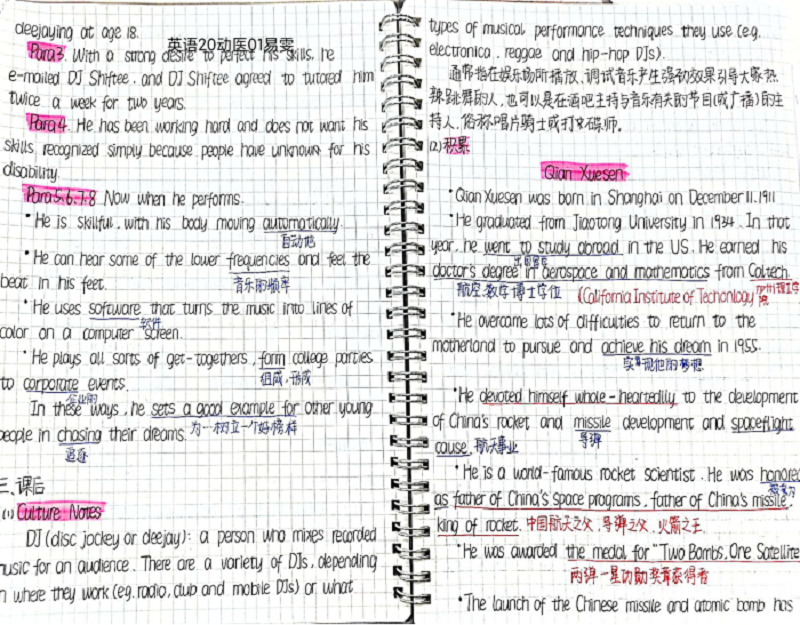 deejaying at age 18.
英语20动医01易雯
Para3. With a strong desire to perfect his skills, he
e-mailed DJ Shiftee, and DJ Shiftee agreed to tutored him
twice a week for two years.
Para4. He has been working hard and does not want his
skills, recognized simply because people have unknown for his
disability.
Para5.6.7.8 Now when he performs.
•He is skillful, with his body moving automatically.
自动地
•He can hear some of the lower frequencies and feel the
音乐的频率
beat in his feet.
•He uses software that turns the music into lines of
软件
color on a computer screen.
•He plays all sorts of get-togethers, form college parties
组成,形成
to corporate events.
企业的
In these ways, he sets a good example for other young
为一树立一个好榜样
people in chasing their dreams.
追逐
三.课后
(1) Culture Notes
DJ (disc jockey or deejay): a person who mixes recorded
music for an audience. There are a variety of DJs, depending
n where they work (eg. radio, club and mobile DJs) or what
types of musical performance techniques they use (eg.
electronica, reggae and hip-hop DJs).
通常指在娱乐场所播放、调试音乐产生强劲效果引导大家热
辣跳舞的人,也可以是在酒吧主持与音乐有关的节目(或广播)的主
持人,俗称唱片骑士或打碟师。
(2)积累
Qian Xuesen
•Qian Xuesen was born in Shanghai on December 11.1911
•He graduated from Jiaotong University in 1934. In that
year, he went to study abroad in the US. He earned his
出国留学
doctor's degree in aerospace and mathematics from Caltech.
航空.数学博士学位 (California Institute of Techonlogy 加州理工学院
•He overcame lots of difficulties to return to the
motherland to pursue and achieve his dream in 1955.
实现他的梦想
•He devoted himself whole-heartedlly to the development
of China's rocket and missile development and spaceflight
导弹
cause. 航天事业
•He is a world-famous rocket scientist. He was honored
as father of China's space programs, father of China's missile,
king of rocket. 中国航天之父、导弹之父、火箭之王.
•He was awarded the medal for "Two Bombs, One Satellite
两弹一星功勋奖章获得者
•The launch of the Chinese missile and atomic bomb has